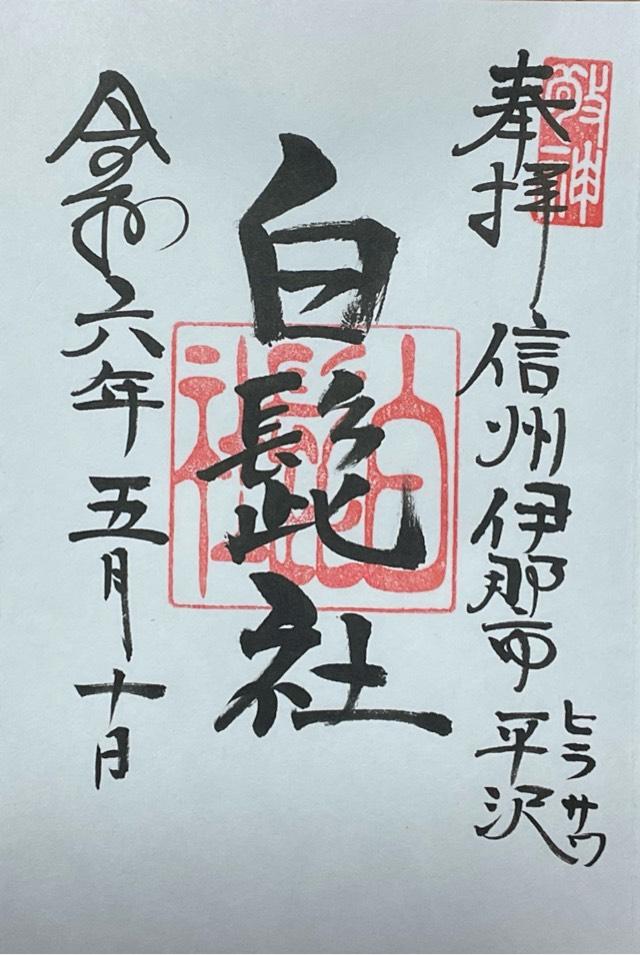 敬神
奉拝 信州伊那市平沢
ヒラサワ
白髭社
白髭社
令和六年五月十日